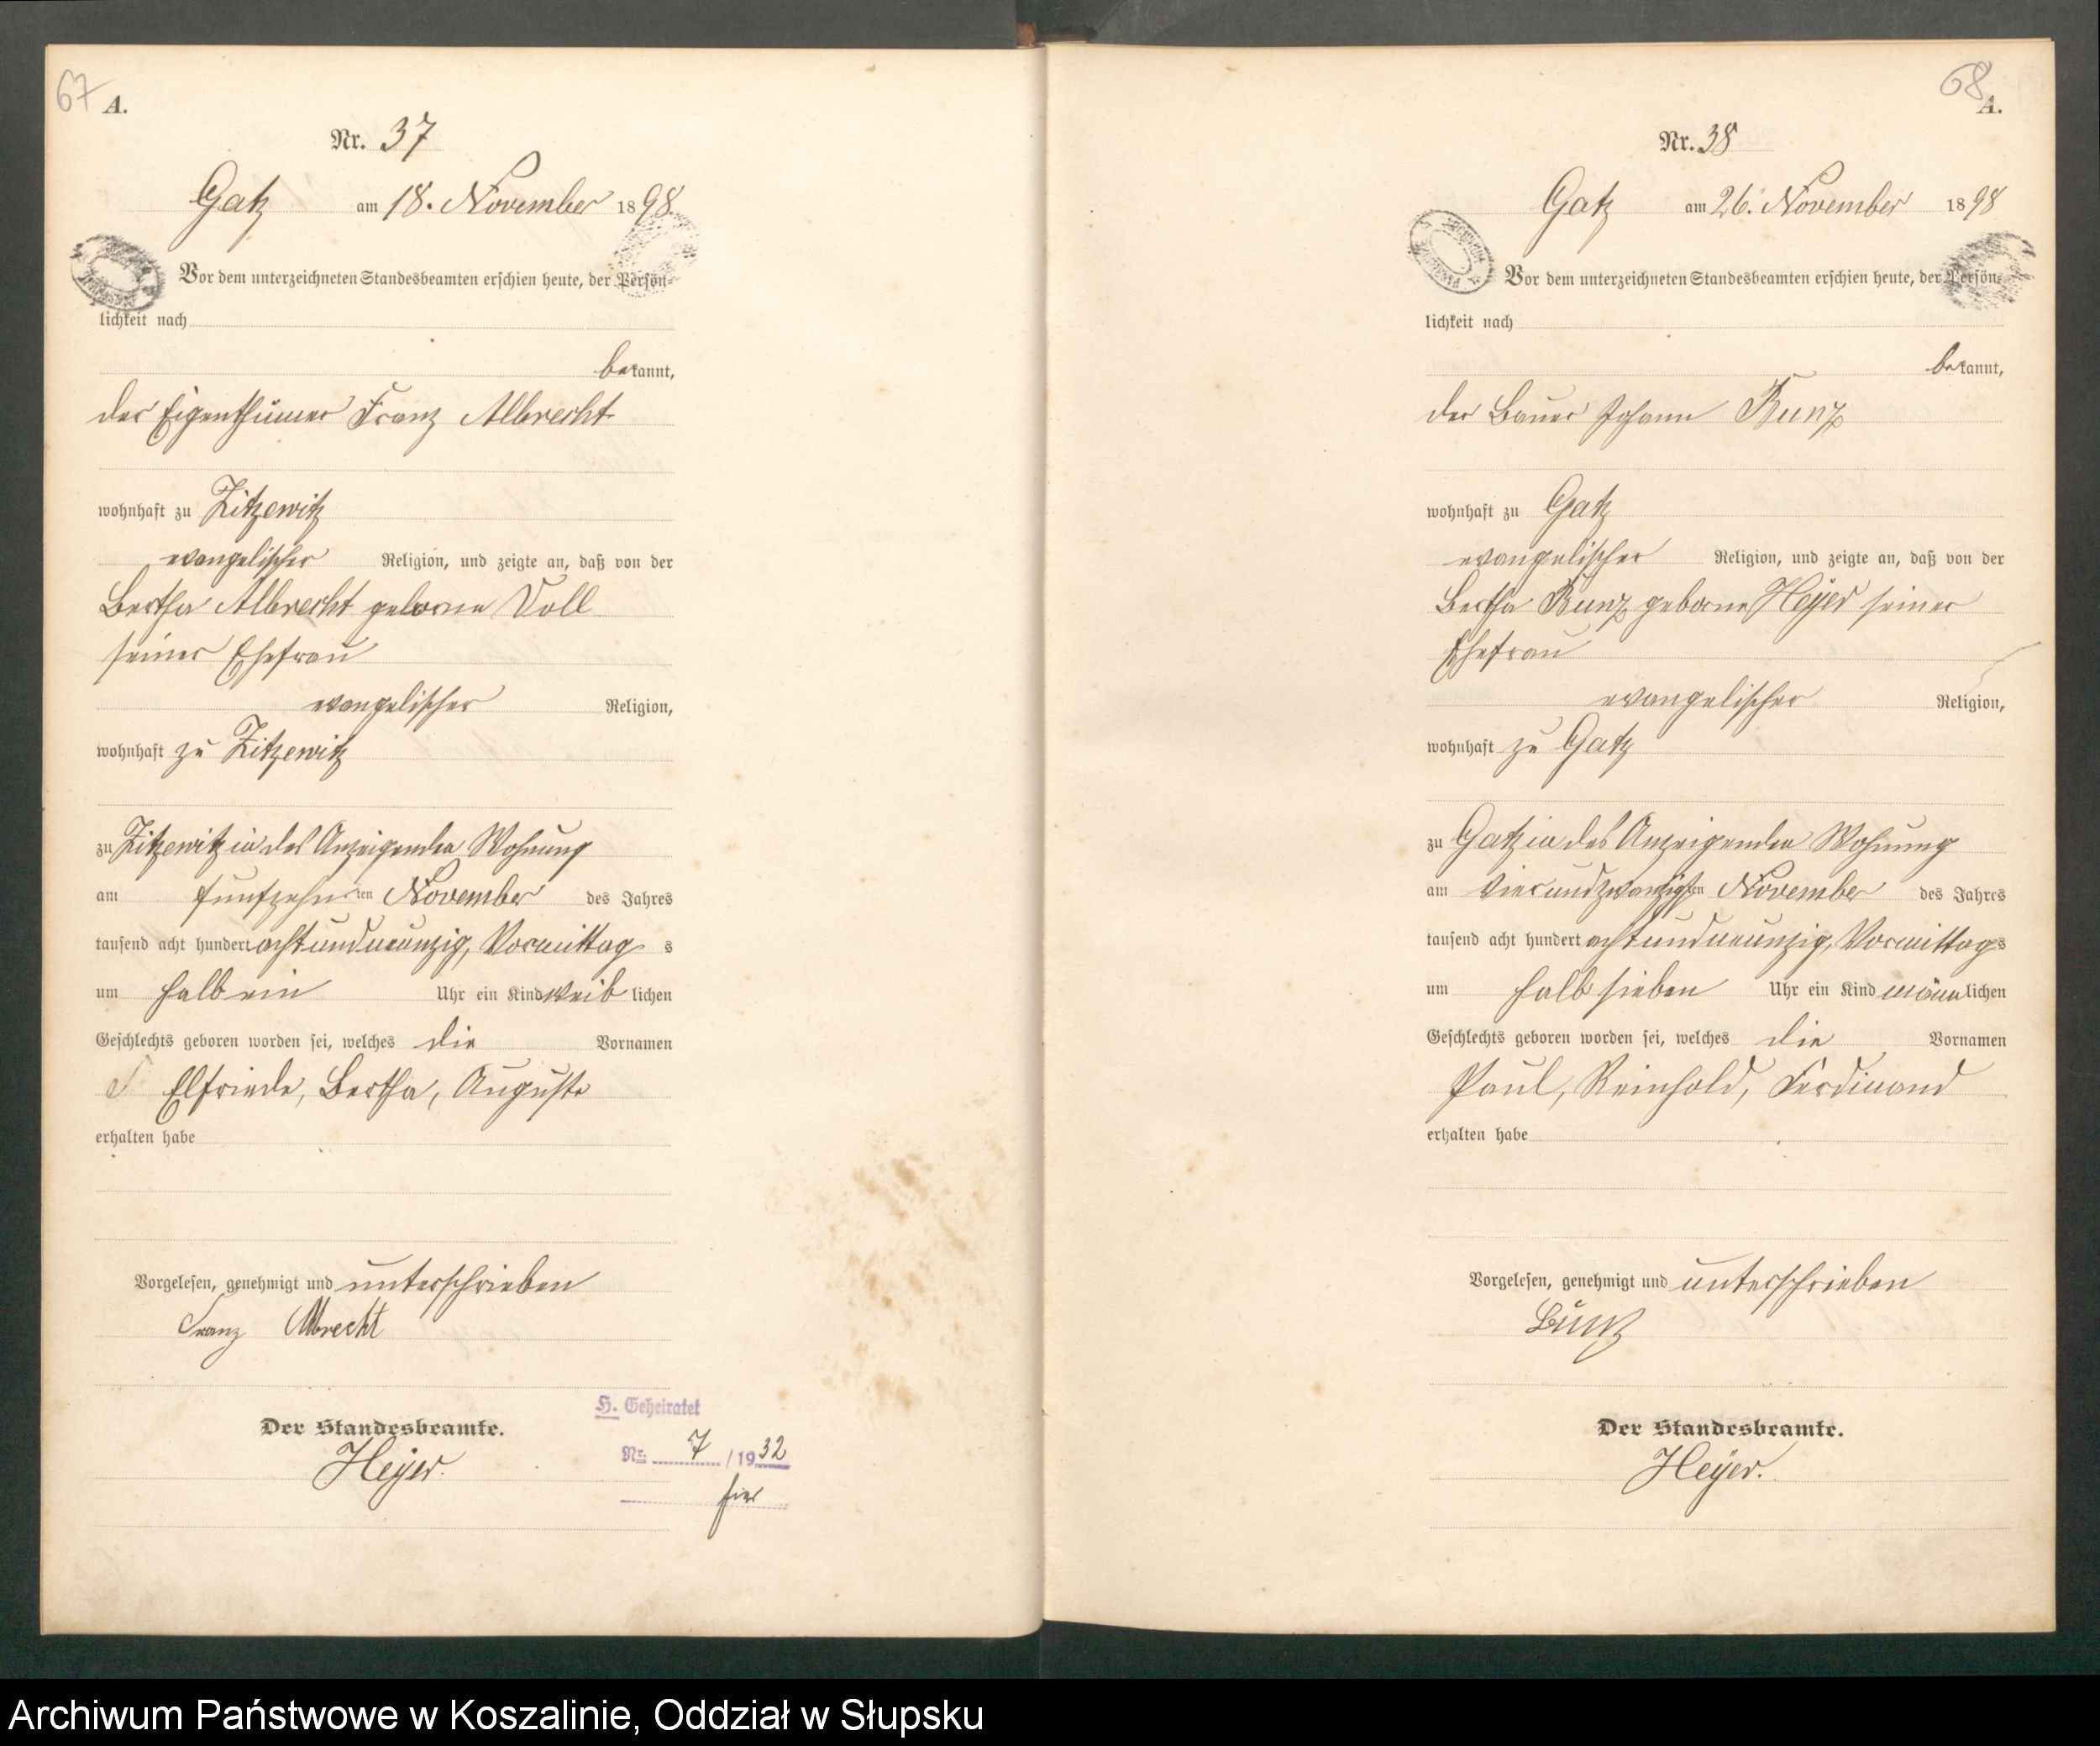 67
A.
Nr. 37
Gatz am 18. November 1898.
Vor dem unterzeichneten Standesbeamten erschien heute, der Persön=
lichkeit nach
bekannt,
der Eigenthümer Franz Albrecht
wohnhaft zu Zitzewitz
evangelischer Religion, und zeigte an, daß von der
Bertha Albrecht geborne Voll
seiner Ehefrau
evangelischer Religion,
wohnhaft zu Zitzewitz
zu Zitzewitz in des Anzeigenden Wohnung
am fünfzehnten November des Jahres
tausend acht hundert achtundneunzig, Vormittags
um halb ein Uhr ein Kind weiblichen
Geschlechts geboren worden sei, welches die Vornamen
Elfriede, Bertha, Auguste
erhalten habe
Vorgelesen, genehmigt und unterschrieben
Franz Albrecht
Der Standesbeamte.
Heyer.
H. Geheiratet
Nr. 7 / 1932
hier
68
A.
Nr. 38
Gatz am 26. November 1898
Vor dem unterzeichneten Standesbeamten erschien heute, der Persön=
lichkeit nach
bekannt,
der Bauer Johann Bunz
wohnhaft zu Gatz
evangelischer Religion, und zeigte an, daß von der
Bertha Bunz geborne Heyer seiner
Ehefrau
evangelischer Religion,
wohnhaft zu Gatz
zu Gatz in des Anzeigenden Wohnung
am vierundzwanzigsten November des Jahres
tausend acht hundert achtundneunzig, Vormittags
um halb sieben Uhr ein Kind männlichen
Geschlechts geboren worden sei, welches die Vornamen
Paul, Reinhold, Ferdinand
erhalten habe
Vorgelesen, genehmigt und unterschrieben
Bunz
Der Standesbeamte.
Heyer.
Archiwum Państwowe w Koszalinie, Oddział w Słupsku